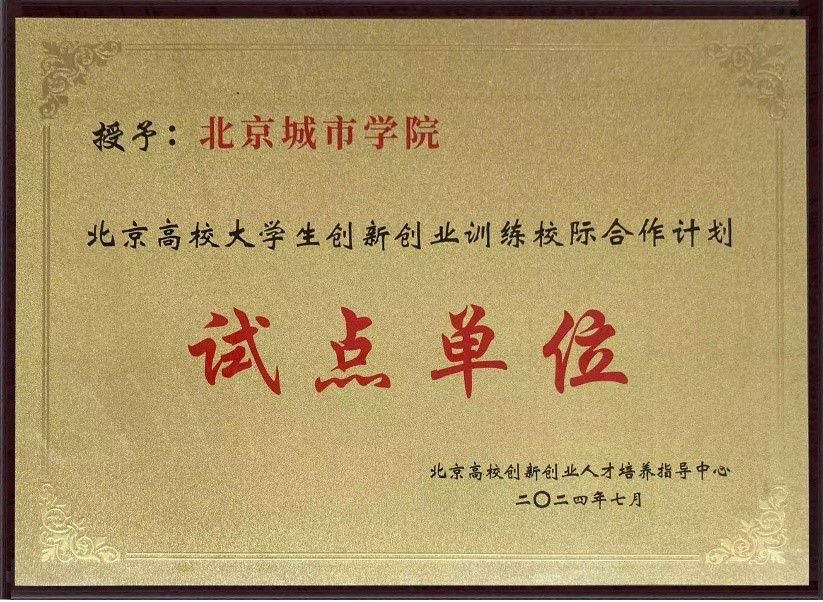 授予：北京城市学院
北京高校大学生创新创业训练校际合作计划
试点单位
北京高校创新创业人才培养指导中心
二〇二四年七月